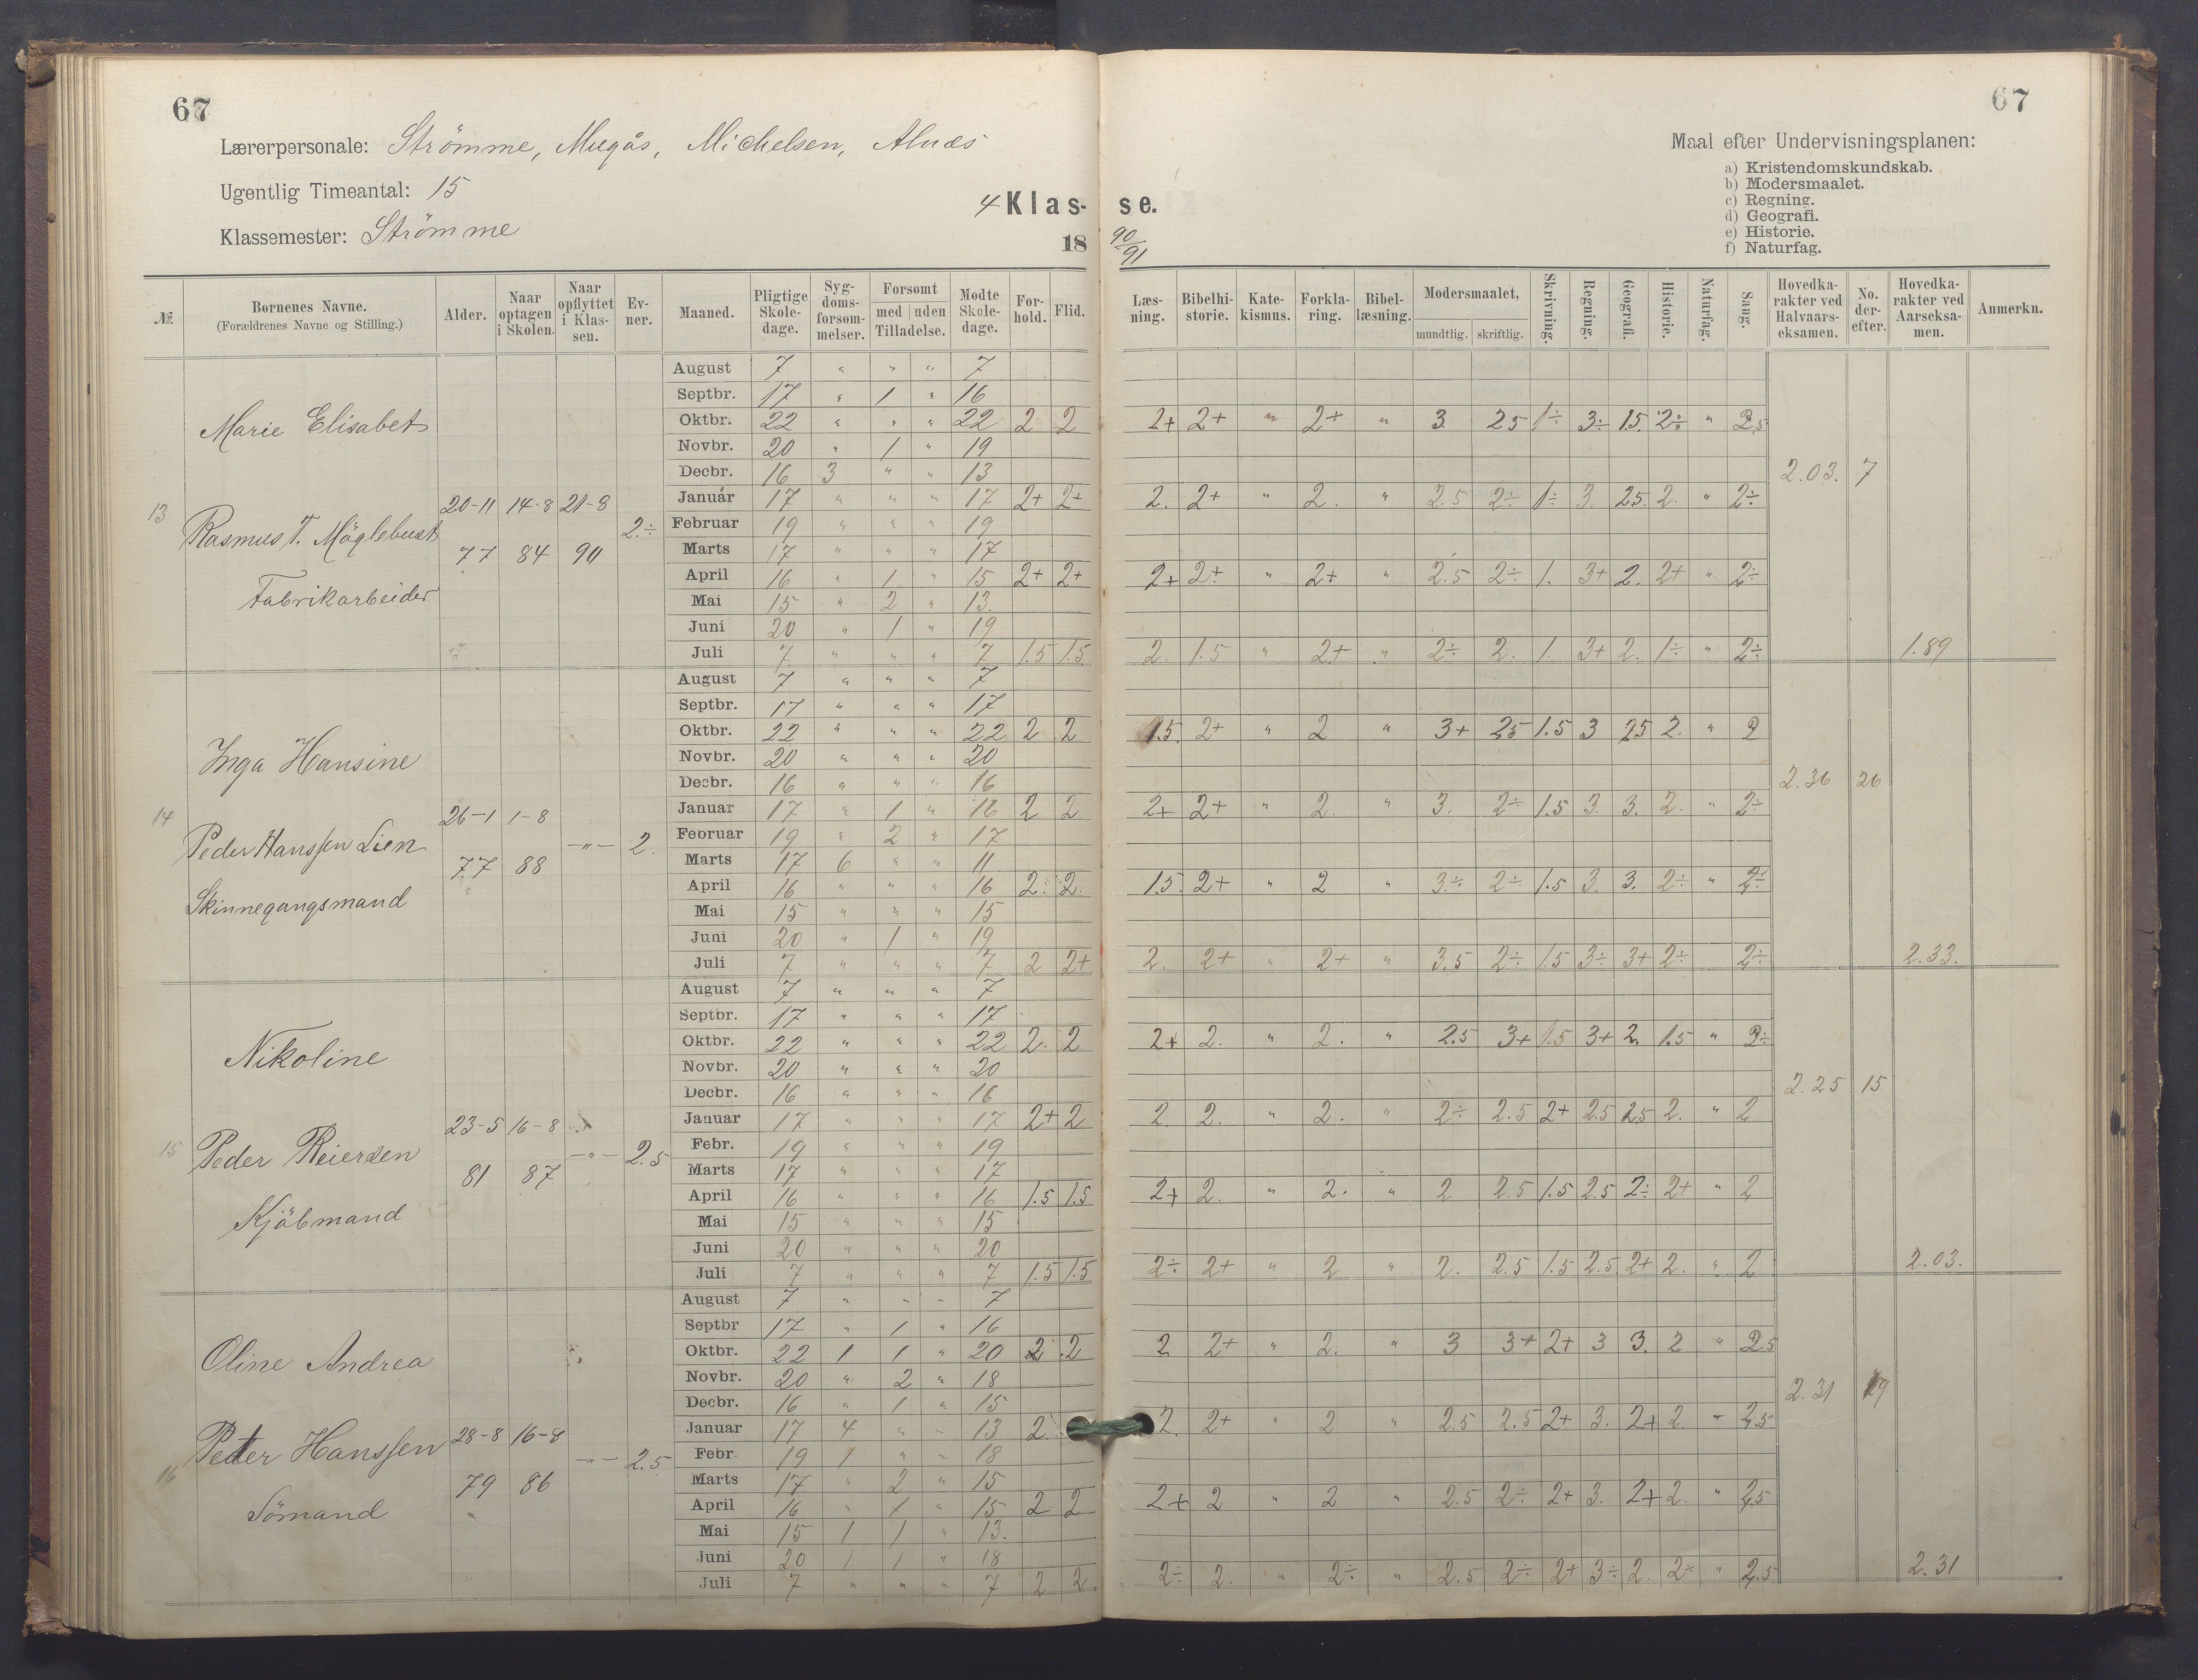 67
67
Lærerpersonale: Strömme, Mugås, Michelsen, Alnæs
Ugentlig Timeantal: 15
Klassemester: Strömme
4 Klas-se.
18 90/91
Maal efter Undervisningsplanen:
a) Kristendomskundskab.
b) Modersmaalet.
c) Regning.
d) Geografi.
e) Historie.
f) Naturfag.
№ | Bornenes Navne. (Forældrenes Navne og Stilling.) | Alder. | Naar optagen i Skolen. | Naar opflyttet i Klassen. | Evner. | Maaned. | Pligtige Skoledage. | Sygdomsforsommelser. | Forsomt med uden Tilladelse. | Modte Skoledage. | Forhold. | Flid. | Læsning. | Bibelhistorie. | Katekismus. | Forklaring. | Bibellæsning. | Modersmaalet, mundtlig. skriftlig. | Skrivning. | Regning. | Geografi. | Historie. | Naturfag. | Sang. | Hovedkarakter ved Halvaarseksamen. | No. derefter. | Hovedkarakter ved Aarseksamen. | Anmerkn.
13 Marie Elisabet
Rasmus T. Möglebust
Fabrikarbeider
20-11 77 | 14-8 84 | 21-8 90 | 2÷
August 7 " " " 7
Septbr. 17 " 1 " 16
Oktbr. 22 " " " 22 2 2 | 2+ 2+ " 2+ " 3 25 1÷ 3÷ 15 2÷ " 2.5
Novbr. 20 " 1 " 19
Decbr. 16 3 " " 13 | 2.03. 7
Januar 17 " " " 17 2+ 2+ | 2. 2+ " 2. " 2.5 2÷ 1÷ 3. 25 2. " 2÷
Februar 19 " " " 19
Marts 17 " " " 17
April 16 " 1 " 15 2+ 2+ | 2+ 2+ " 2+ " 2.5 2÷ 1. 3+ 2. 2+ " 2÷
Mai 15 " 2 " 13.
Juni 20 " 1 " 19
Juli 7 " " " 7 1.5 1.5 | 2. 1.5 " 2+ " 2÷ 2. 1. 3+ 2. 1÷ " 2÷ | 1.89
14 Inga Hansine
Peder Hanssen Lien
Skinnegangsmand
26-1 77 | 1-8 88 | -"- | 2.
August 7 " " " 7
Septbr. 17 " " " 17
Oktbr. 22 " " " 22 2 2 | 1.5. 2+ " 2 " 3+ 25 1.5 3 25 2. " 2
Novbr. 20 " " " 20
Decbr. 16 " " " 16 | 2.36 26
Januar 17 " 1 " 16 2 2 | 2+ 2+ " 2. " 3. 2÷ 1.5 3. 3. 2. " 2÷
Februar 19 " 2 " 17
Marts 17 6 " " 11
April 16 " " " 16 2. 2. | 1.5. 2+ " 2 " 3÷ 2÷ 1.5 3. 3. 2÷ " 2÷
Mai 15 " " " 15
Juni 20 " 1 " 19
Juli 7 " " " 7 2 2+ | 2. 2+ " 2+ " 3.5 2÷ 1.5 3÷ 3+ 2÷ 2÷ | 2.33.
15 Nikoline
Peder Reiersen
Kjöbmand
23-5 81 | 16-8 87 | -"- | 2.5
August 7 " " " 7
Septbr. 17 " " " 17
Oktbr. 22 " " " 22 2. 2 | 2+ 2. " 2. " 2.5 3+ 1.5 3+ 2 1.5 " 2÷
Novbr. 20 " " " 20
Decbr. 16 " " " 16 | 2.25 15
Januar 17 " " " 17 2+ 2 | 2. 2. " 2. " 2÷ 2.5 2+ 2.5 2.5 2. " 2
Febr. 19 " " " 19
Marts 17 " " " 17
April 16 " " " 16 1.5 1.5 | 2+ 2. " 2. " 2 2.5 1.5 2.5 2÷ 2+ " 2
Mai 15 " " " 15
Juni 20 " " " 20
Juli 7 " " " 7 1.5 1.5 | 2÷ 2+ " 2 " 2. 2.5 1.5 2.5 2+ 2. " 2 | 2.03.
16 Oline Andrea
Petter Hanssen
Sömand
28-8 79 | 16-8 86 | -"- | 2.5
August 7 " " " 7
Septbr 17 " 1 " 16
Oktbr. 22 1 1 " 20 2 2 | 2 2+ " 2. " 3 3+ 2+ 3 3. 2 " 2.5
Novbr. 20 " 2 " 18
Decbr. 16 " 1 " 15 | 2.31 19
Januar 17 4 " " 13 2 | 2. 2+ " 2 " 2.5 2.5 2+ 3. 2+ 2. " 2.5
Febr 19 1 " " 18
Marts 17 " 2 " 15
April 16 " 1 " 15 2 2 | 2+ 2 " 2 " 2.5 2÷ 2+ 3. 2+ 2. " 2.5
Mai 15 1 1 " 13.
Juni 20 1 1 " 18
Juli 7 " " " 7 2 2. | 2÷ 2. " 2÷ " 2.5 2÷ 2+ 3÷ 2. 2÷ " 2.5 | 2.31